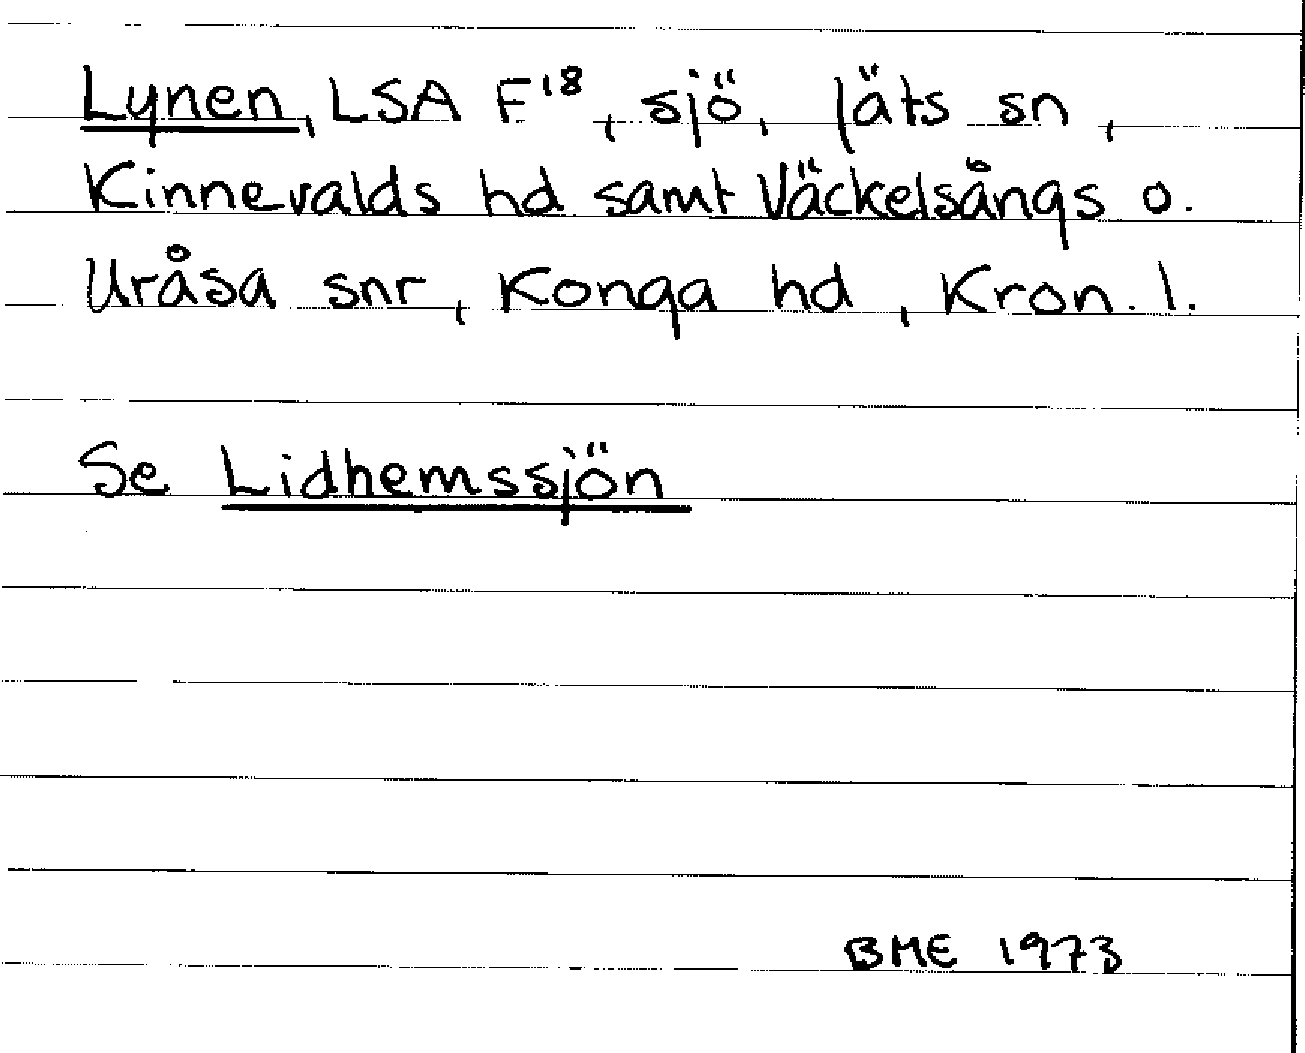 Lynen, LSA F¹⁸, sjö, Jäts sn,
Kinnevalds hd samt Väckelsångs o.
Uråsa snr, Konga hd, Kron. l.
Se Lidhemssjön
BME 1973